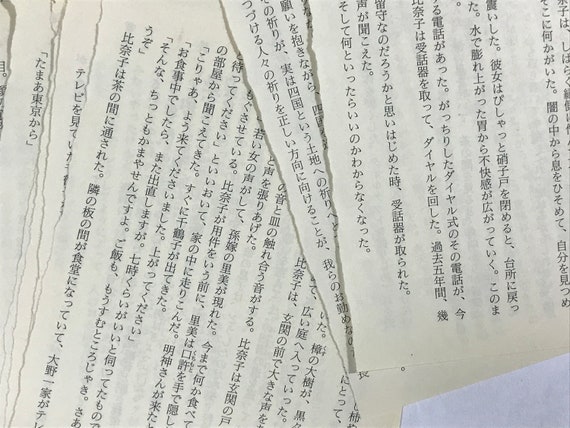 は、しばらく
そこに何かがいた。闇の中から息をひそめて、自分を見つめ
震いした。彼女はぴしゃっと硝子戸を閉めると、台所に戻っ
た。水で膨れ上がった胃から不快感が広がっていく。このま
する電話があった。がっちりしたダイヤル式のその電話が、今
比奈子は受話器を取って、ダイヤルを回した。過去五年間、幾
留守なのだろうかと思いはじめた時、受話器が取られた。
声が聞こえた。
そして何といったらいいのかわからなくなった。
願いを抱きながら、四国
の祈りが、実は四国という土地への祈りへと
つづける人々の祈りを正しい方向に向けることが、我らのお勤めな
にとって、
いた。樟の大樹が、黒々
て、広い庭へ入っていった。
比奈子は、玄関の前で大きな声を
の音と皿の触れ合う音がする。
と声を張りあげた。
若い女の声がして、孫嫁の里美が現れた。今まで何か食べて
もぐさせている。比奈子は玄関の戸
待ってください」といいおいて、家の中に走りこんだ。
比奈子が用件をいう前に、里美は口許を手で隠し
の部屋から聞こえてきた。すぐに千鶴子が出てきた。
「こりゃあ、よう来てくださいました。上がってください」
「お食事中でしたら、また出直しますが。七時くらいがいいと伺ってたもので
「そんな、ちっともかまやせんですよ。ご飯も、もうすむところじゃき。さあ
うぞ」
比奈子は茶の間に通された。隣の板の間が食堂になっていて、大野一家がテレ
テレビを見ていた
「たまあ東京から」